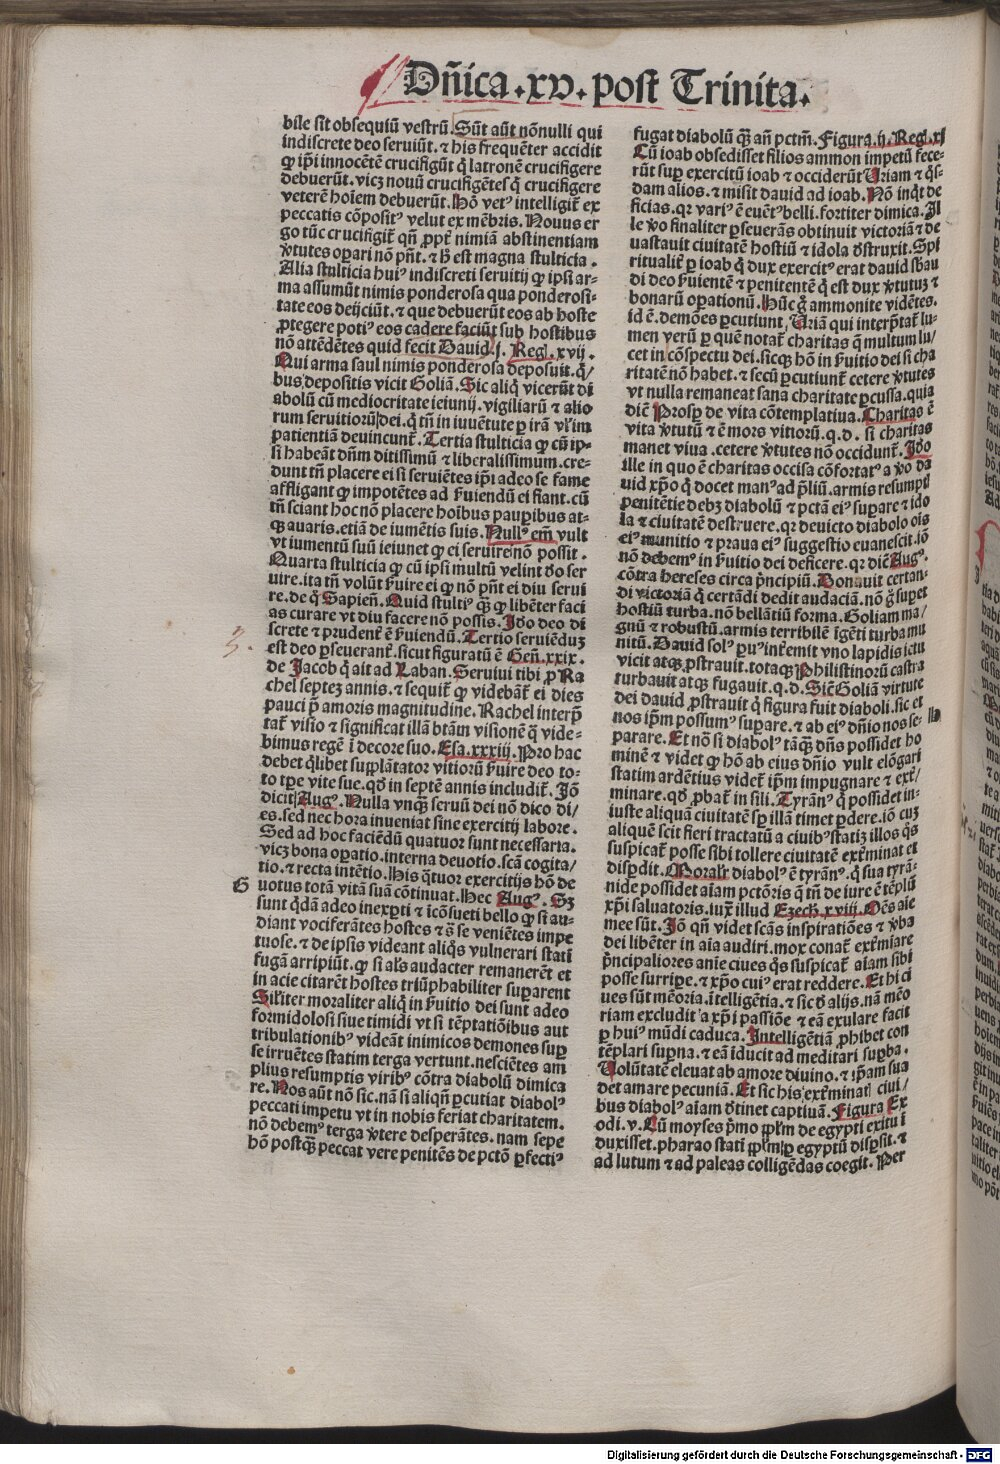 Dñica .xv. post Trinita.
bile sit obsequiū vestrū. Sūt aūt nōnulli qui
indiscrete deo seruiūt. ⁊ his frequēter accidit
ꝙ ip̄i innocētē crucifigūt q̄ latronē crucifigere
debuerūt. vicꝫ nouū crucifigētes q̄ crucifigere
veterē hoīem debuerūt. Hō vetꝰ intelligit̄ ex
peccatis cōpositꝰ velut ex mēbris. Nouus er
go tūc crucifigit̄ qn̄ ꝓpt̄ nimiā abstinentiam
v̄tutes oꝑari nō pn̄t. ⁊ ħ est magna stulticia.
Alia stulticia huiꝰ indiscreti seruitij ꝙ ipsi ar-
ma assumūt nimis ponderosa qua ponderosi-
tate eos deijciūt. ⁊ que debuerūt eos ab hoste
ꝓtegere potiꝰ eos cadere faciūt sub hostibus
nō attēdētes quid fecit Dauid. j. Regl. xvij.
Qui arma saul nimis ponderosa deposuit. q̄/
bus depositis vicit Goliā. Sic aliq̄ vicerūt di
abolū cū mediocritate ieiunij. vigiliarū ⁊ alio
rum seruitiorū dei. q̄ tn̄ in iuuētute ꝑ irā vl̓ im
patientiā deuincunt̄. Tertia stulticia ꝙ cū ip-
si habeāt dn̄m ditissimū ⁊ liberalissimum. cre-
dunt tn̄ placere ei si seruiētes ip̄i adeo se fame
affligant ꝙ impotētes ad ẜuiendū ei fiant. cū
tn̄ sciant hoc nō placere hoībus pauꝑibus at-
qꝫ auaris. etiā de iumētis suis. Nullꝰ em̄ vult
vt iumentū suū ieiunet ꝙ ei seruire nō possit.
Quarta stulticia ꝙ cū ipsi multū velint do̅ ser
uire. ita tn̄ volūt ẜuire ei ꝙ nō pn̄t ei diu serui
re. de q̄ Sapien̄. Quid stultiꝰ qꝫ ꝙ libēter faci
as curare vt diu facere nō possis. Ido̅ deo di
screte ⁊ prudent̄ ē ẜuiendū. Tertio seruiēduꝫ
est deo ꝑseuerant̄. sicut figuratū ē Gen̄. xxix.
de Jacob q̄ ait ad Laban. Seruiui tibi ꝓ Ra
chel septeꝫ annis. ⁊ sequit̄ ꝙ videbāt̄ ei dies
pauci p̄ amoris magnitudine. Rachel interp̄
tat̄ visio ⁊ significat illā btām visionē q̄ vide-
bimus regē ī decore suo. Esa. xxxiij. Pro hac
debet q̄libet supplātator vitiorū ẜuire deo to-
to tꝑe vite sue. qd̄ in septē annis includit̄. Jō
dicit Augꝰ. Nulla vnqꝫ seruū dei nō dico di/
es. sed nec hora inueniat sine exercitij labore.
Sed ad hoc faciēdū quatuor sunt necessaria.
vicꝫ bona oꝑatio. interna deuotio. scā cogita/
tio. ⁊ recta intētio. His q̄tuor exercitijs hō de
G uotus totā vitā suā cōtinuat. Hec Augꝰ. Sꝫ
sunt q̄dā adeo inexꝑti ⁊ īcōsueti bello ꝙ si au-
diant vociferātes hostes ⁊ ꝯ̄ se veniētes impe
tuose. ⁊ de ipsis videant aliq̄s vulnerari stati
fugā arripiūt. ꝙ si al̓s audacter remanerēt et
in acie citarēt hostes triūphabiliter suꝑarent
Sil̓iter moraliter aliq̄ in ẜuitio dei sunt adeo
formidolosi siue timidi vt si tēptatiōibus aut
tribulationibꝰ videāt inimicos demones suꝑ
se irruētes statim terga vertunt. nesciētes am
plius resumptis viribꝰ cōtra diabolū dimica
re. Nos aūt nō sic. nā si aliqn̄ ꝑcutiat diabolꝰ
peccati impetu vt in nobis feriat charitatem.
nō debemꝰ terga v̓tere desperātes. nam sepe
hō postqꝫ peccat vere penitēs de pctō ꝑfectiꝰ
fugat diabolū qꝫ an̄ pctm̄. Figura. ij. Regl. xj
Cū ioab obsedisset filios ammon impetū fece-
rūt suꝑ exercitū ioab ⁊ occiderūt Uriam ⁊ q̄s-
dam alios. ⁊ misit dauid ad ioab. Nō inq̄t de
ficias. qr variꝰ ē euētꝰ belli. fortiter dimica. Il
le v̓o finaliter ꝑseuerās obtinuit victoriā ⁊ de
uastauit ciuitatē hostiū ⁊ idola dstruxit. Spi
ritualit̄ ꝑ ioab q̄ dux exercitꝰ erat dauid ẜbau
di deo ẜuientē ⁊ penitentē q̄ est dux v̓tutuꝫ ⁊
bonarū oꝑationū. Hūc g̊ ammonite vidētes.
id ē. demōes ꝑcutiunt, Uriā qui interp̄tat̄ lu-
men verū ꝑ quē notat̄ charitas q̄ multum lu/
cet in cōspectu dei. sicqꝫ hō in ẜuitio dei si cha
ritatē nō habet. ⁊ secū ꝑcutiunt̄ cetere v̓tutes
vt nulla remaneat sana charitate ꝑcussa. quia
dic̄ Prosꝑ de vita cōtemplatiua. Charitas ē
vita v̓tutū ⁊ ē mors vitiorū. q. d. si charitas
manet viua. cetere v̓tutes nō occidunt̄. Ido̅
ille in quo ē charitas occisa cōfortatꝰ a v̓o da
uid xp̄o q̄ docet manꝰ ad p̄liū. armis resumptꝭ
penitētie debꝫ diabolū ⁊ pctā eiꝰ suꝑare ⁊ ido
la ⁊ ciuitatē destruere. qr deuicto diabolo oīs
eiꝰ munitio ⁊ praua eiꝰ suggestio euanescit. iō
nō debemꝰ in ẜuitio dei deficere. qr dic̄ Augꝰ.
cōtra hereses circa p̄ncipiū. Donauit certan-
di victoriā q̄ certādi dedit audaciā. nō g̊ suꝑet
hostiū turba. nō bellātiū forma. Goliam ma/
gnū ⁊ robustū. armis terribilē īgēti turba mu
nitū. Dauid solꝰ puꝰ inermit vno lapidis ictu
vicit atqꝫ ꝓstrauit. totaqꝫ Philistinorū castra
turbauit atqꝫ fugauit. q. d. Sic̄ Goliā virtute
dei dauid ꝓstrauit q̄ figura fuit diaboli. sic et
nos ip̄m possumꝰ suꝑare. ⁊ ab eiꝰ dn̄io nos se- H
parare. Et nō si diabolꝰ tāqꝫ dn̄s possidet ho
minē ⁊ videt ꝙ hō ab eius dn̄io vult elōgari
statim ardētius videt̄ ip̄m impugnare ⁊ ext̄/
minare. qd̄ ꝓbat̄ in sili. Tyrānꝰ q̄ possidet in-
iuste aliquā ciuitatē sꝑ illā timet ꝑdere. iō cuꝫ
aliquē scit fieri tractatū a ciuibꝰ statiꝫ illos q̄s
suspicat̄ posse sibi tollere ciuitatē ext̓minat et
disꝑdit. Moral̓r diabolꝰ ē tyrānꝰ. q̄ sua tyrā-
nide possidet aīam pctōris q̄ tn̄ de iure ē tēplū
xp̄i saluatoris. iuxͭ illud Ezech. xviij. Oēs aīe
mee sūt. Jō qn̄ videt scās inspiratiōes ⁊ v̓ba
dei libēter in aīa audiri. mox conat̄ ext̓miare
p̄ncipaliores anīe ciues q̄s suspicat̄ aīam sibi
posse surriꝑe. ⁊ xp̄o cuiꝰ erat reddere. Et hi ci
ues sūt mēoria. ītelligētia. ⁊ sic d̄ alijs. nā mēo
riam excludit a xp̄i passiōe ⁊ eā exulare facit
ꝑ huiꝰ mūdi caduca. Intelligētiā ꝓhibet con
tēplari suꝑna. ⁊ eā īducit ad meditari suꝑba.
Uolūtatē eleuat ab amore diuino. ⁊ ip̄am sua
det amare pecuniā. Et sic his ext̓minat ciui/
bus diabolꝰ aīam dtinet captiuā. Figura Ex
odi. v. Cū moyses p̄mo ppl̓m de egypti exitu ī
duxisset. pharao stati ppl̓m ꝑ egyptū disꝑsit. ⁊
ad lutum ⁊ ad paleas colligēdas coegit. Per
Digitalisierung gefördert durch die Deutsche Forschungsgemeinschaft - DFG